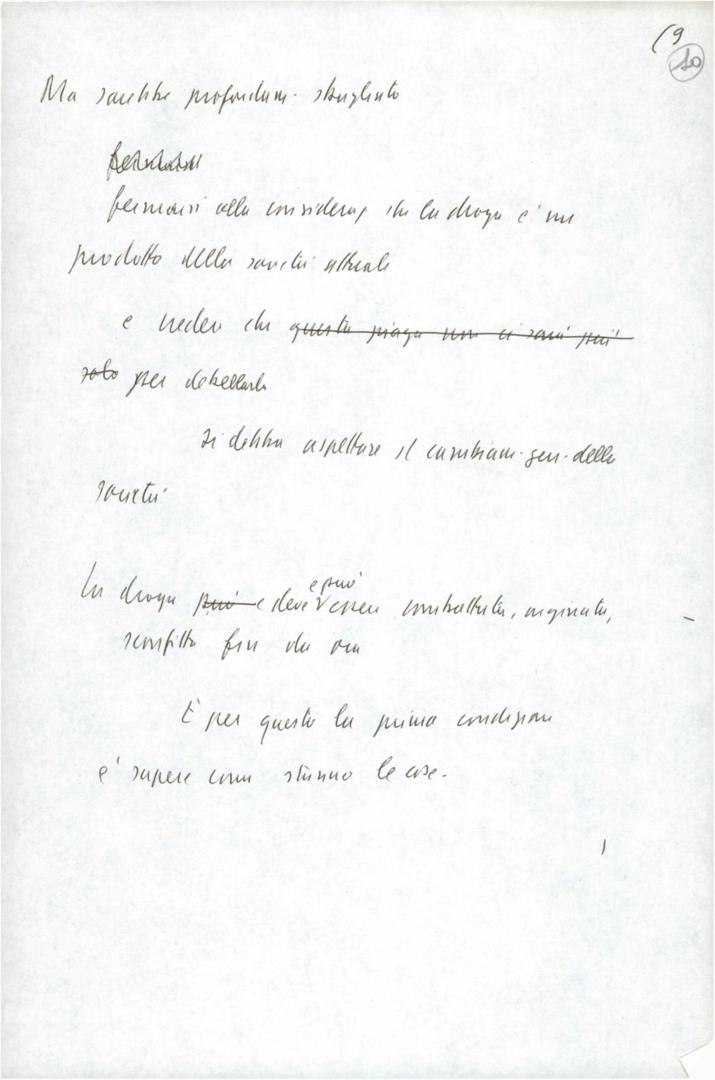 (9
10
Ma sarebbe profondam. sbagliato
fermarsi alla consideraz che la droga è un
prodotto della società attuale
e credere che questa piaga non ci sarà più
solo per debellarla
si debba aspettare il cambiam. gen. della
società
e può
La droga può e deve essere combattuta, arginata,
sconfitta fin da ora
E per questo la prima condizione
è sapere come stanno le cose.